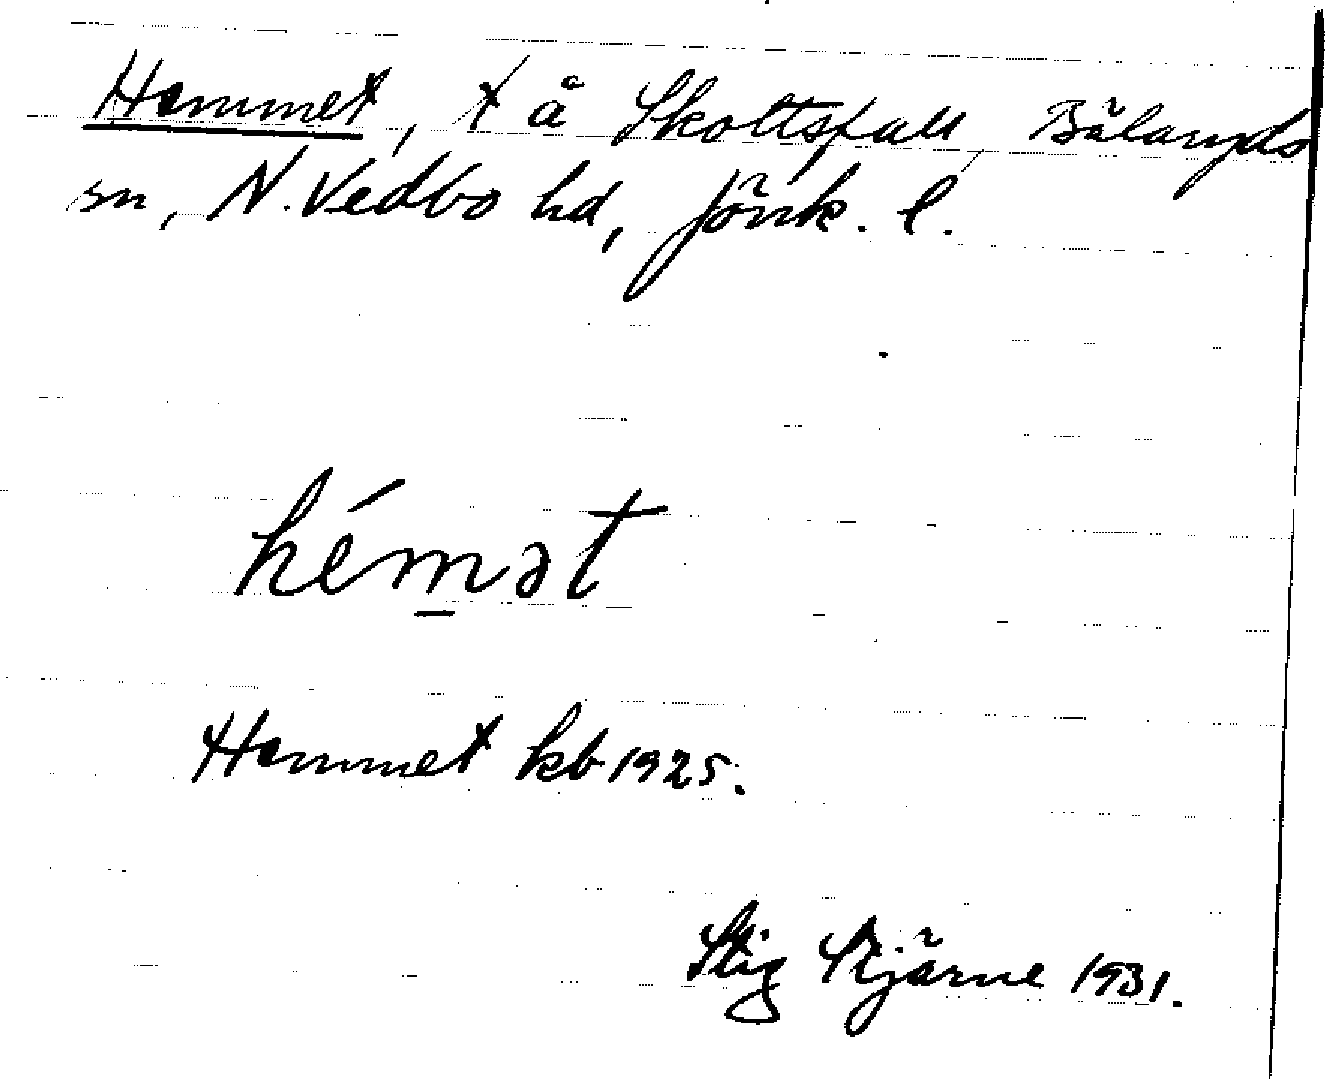 Hemmet, t å Skottsfall, Bälaryds
sn, N. Vedbo hd, Jönk. l.
hémət
Hemmet kb 1925.
Stig Stjärne 1931.